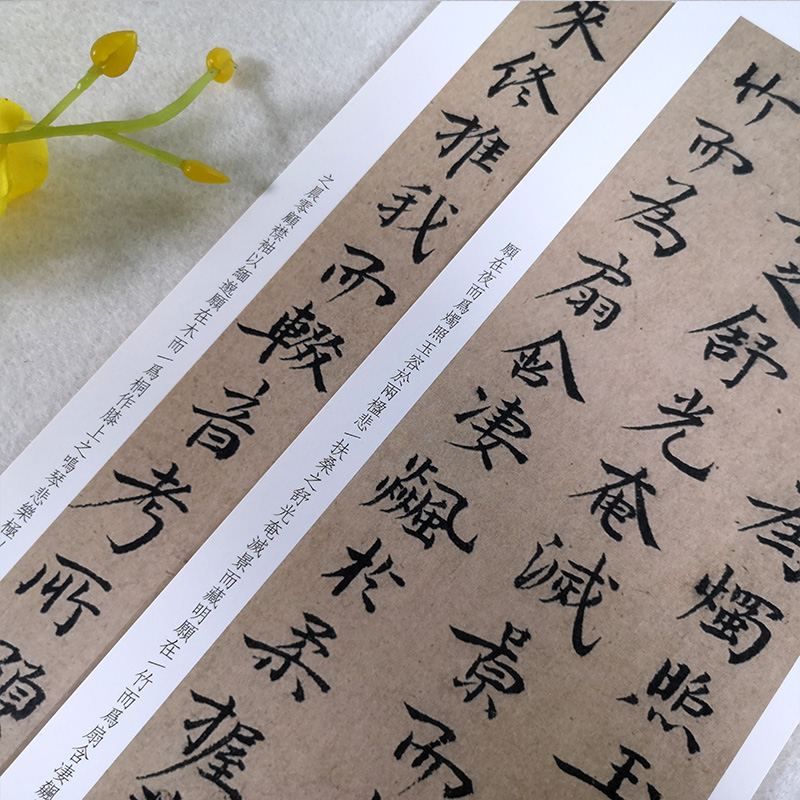 為燭照玉
之舒光奄滅景而
竹而為扇含凄飆於柔握
願在夜而爲燭照玉容於兩楹悲/扶桑之舒光奄滅景而藏明願在/竹而爲扇含凄飆
來終推我而輟音考所願
之晨零顧襟袖以緬邈願在木而/爲桐作膝上之鳴琴悲樂極